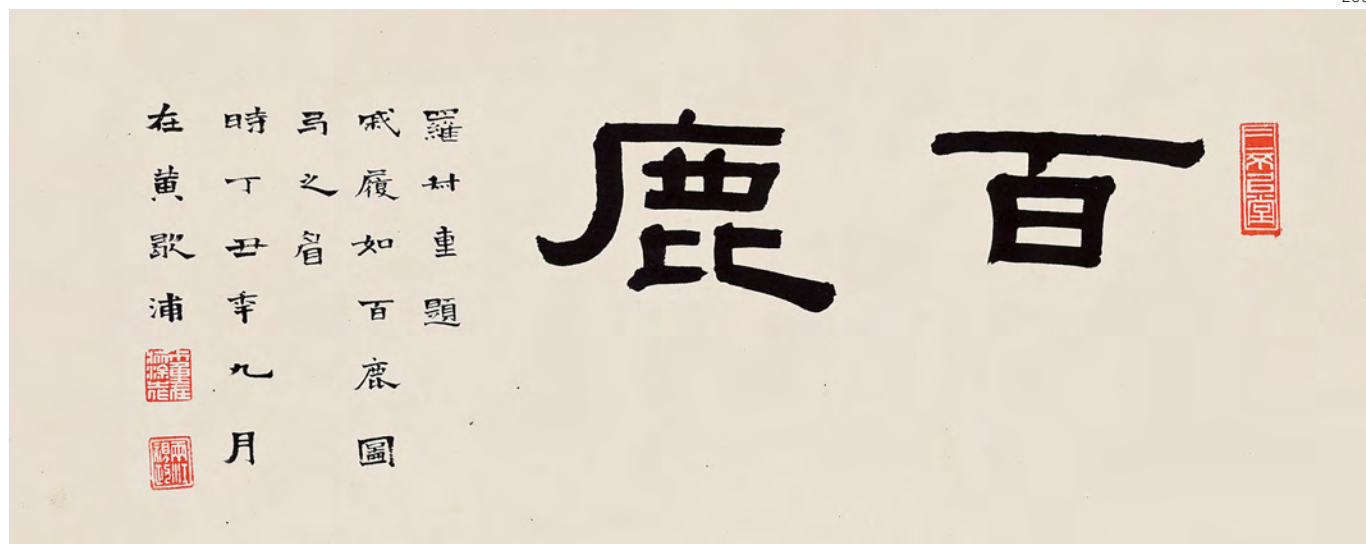 百鹿
羅村重題
戚履如百鹿圖
弓之眉
時丁丑年九月
在黃歇浦